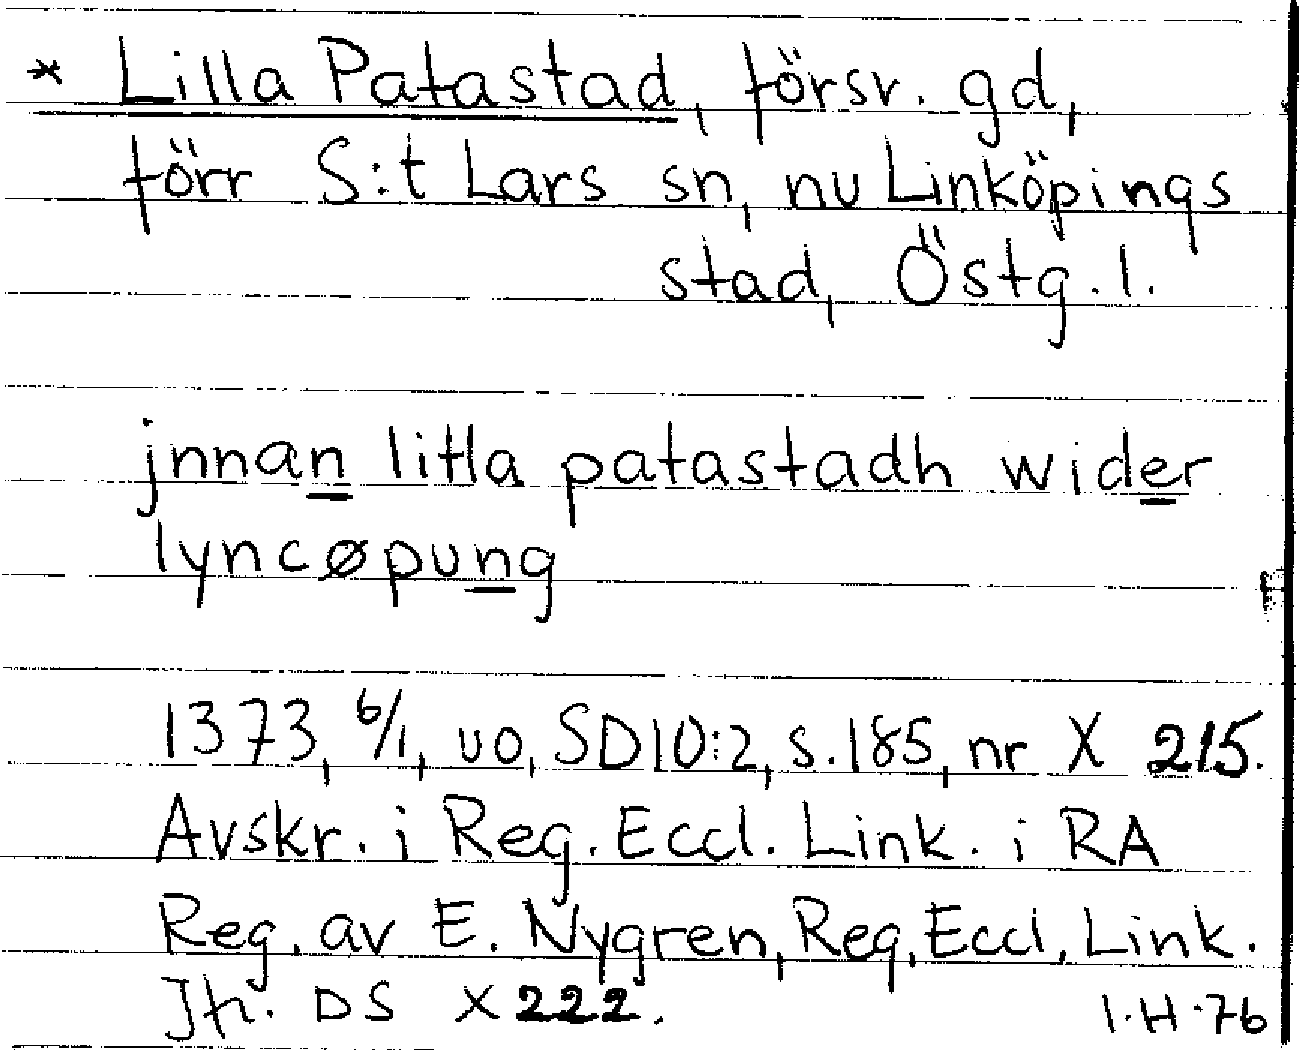 * Lilla Patastad, försv. gd,
förr S:t Lars sn, nu Linköpings
stad, Östg. l.
jnnan litla patastadh wider
lyncøpung
1373, 6/1, uo, SD10:2, s. 185, nr X 215.
Avskr. i Reg. Eccl. Link. i RA
Reg. av E. Nygren, Reg. Eccl. Link.
Jfr. DS X 222.
I.H.76